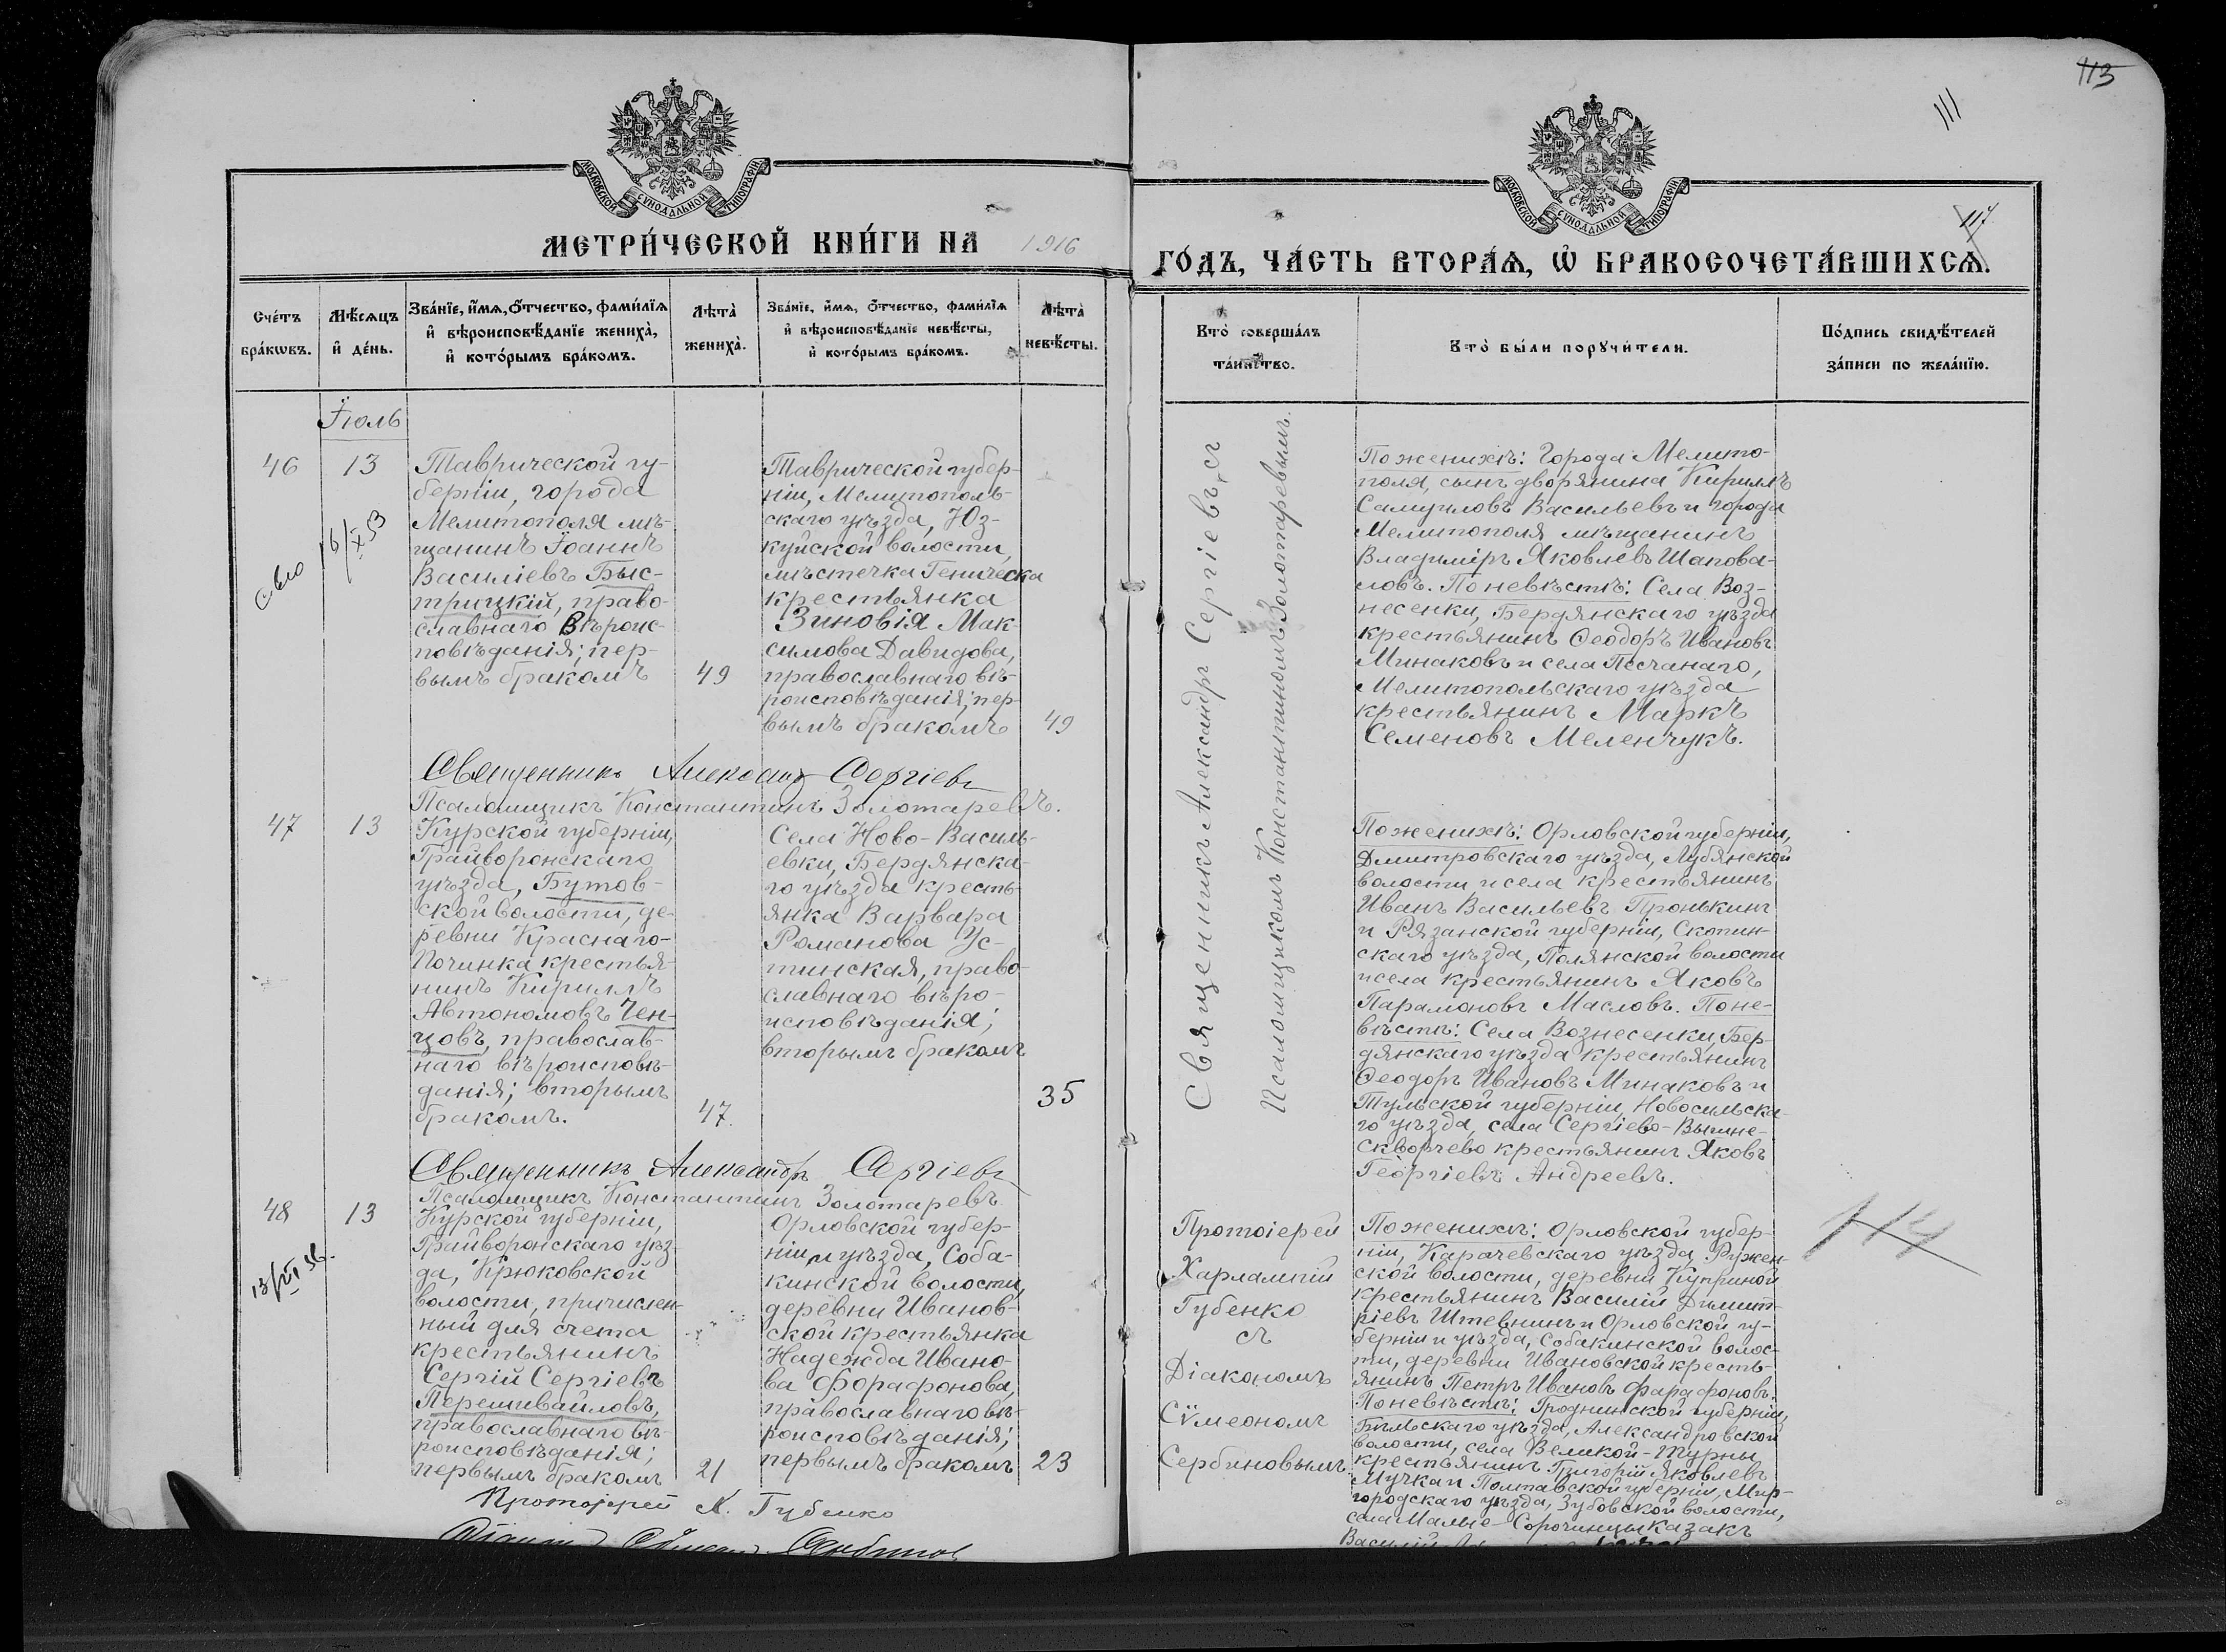 МОСКОВСКОЙ СѴНОДАЛЬНОЙ ТИПОГРАФІИ
МЕТРИ́ЧЕСКОЙ КНИ́ГИ НА 1916
Сче́тъ
бра́кѡвъ.
Мѣ́сяцъ
и҆ де́нь.
Зва́нїе, и҆́мя, ѻ҆́тчество, фами́лїя
и҆ вѣроисповѣ́данїе жениха̀,
и҆ кото́рымъ бра́комъ.
Лѣта̀
жениха̀.
Зва́нїе, и҆́мя, ѻ҆́тчество, фами́лїя
и҆ вѣроисповѣ́данїе невѣ́сты,
и҆ кото́рымъ бра́комъ.
Лѣта̀
невѣ́сты.
Іюль
46
13
16/X 53
Таврической гу-
берніи, города
Мелитополя мѣ-
щанинъ Іоаннъ
Василіевъ Быс-
трицкій, право-
славнаго вѣроис-
повѣданія; пер-
вымъ бракомъ
49
Таврической губер-
ніи, Мелитополь-
скаго уѣзда, Юз-
куйской волости,
мѣстечка Геническа
крестьянка
Зиновія Мак-
симова Давидова,
православнаго вѣ-
роисповѣданія; пер-
вымъ бракомъ
49
Священникъ Александръ Сергіевъ
Псаломщикъ Константинъ Золотаревъ.
47
13
Курской губерніи,
Грайворонскаго
уѣзда, Бутов-
ской волости, де-
ревни Краснаго-
Починка крестья-
нинъ Кириллъ
Автономовъ Чен-
цовъ, православ-
наго вѣроисповѣ-
данія; вторымъ
бракомъ.
47.
Села Ново-Василь-
евки, Бердянска-
го уѣзда кресть-
янка Варвара
Романова Ус-
тинская, право-
славнаго вѣро-
исповѣданія;
вторымъ бракомъ
35
Священникъ Александръ Сергіевъ
Псаломщикъ Константинъ Золотаревъ
48
13
13/VI 56.
Курской губерніи,
Грайворонскаго уѣз-
да, Крюковской
волости, причислен-
ный для счета
крестьянинъ
Сергій Сергіевъ
Перешивайловъ,
православнаго вѣ-
роисповѣданія;
первымъ бракомъ
21
Орловской губер-
ніи и уѣзда, Соба-
кинской волости,
деревни Иванов-
ской крестьянка
Надежда Ивано-
ва Форафонова,
православнаго вѣ-
роисповѣданія;
первымъ бракомъ
23
Протоіерей Х. Губенко
113
111
117
МОСКОВСКОЙ СѴНОДАЛЬНОЙ ТИПОГРАФІИ
ГО́ДЪ, ЧА́СТЬ ВТОРА́Я, Ѡ҆ БРАКОСОЧЕТА́ВШИХСЯ.
Кто̀ соверша́лъ
та́инство.
Кто̀ бы́ли порꙋчи́тели.
По́дпись свидѣ́телей
за́писи по жела́нїю.
Священникъ Александръ Сергіевъ, съ
Псаломщикомъ Константиномъ Золотаревымъ.
По женихѣ: Города Мелито-
поля, сынъ дворянина Кириллъ
Самуиловъ Васильевъ и города
Мелитополя мѣщанинъ
Владиміръ Яковлевъ Шапова-
ловъ. По невѣстѣ: Села Воз-
несенки, Бердянскаго уѣзда
крестьянинъ Ѳеодоръ Ивановъ
Минаковъ и села Песчанаго,
Мелитопольскаго уѣзда
крестьянинъ Маркъ
Семеновъ Меленчукъ.
По женихѣ: Орловской губерніи,
Дмитровскаго уѣзда, Лубянской
волости и села крестьянинъ
Иванъ Васильевъ Пронькинъ
и Рязанской губерніи, Скопин-
скаго уѣзда, Полянской волости
и села крестьянинъ Яковъ
Парамоновъ Масловъ. По не-
вѣстѣ: Села Вознесенки, Бер-
дянскаго уѣзда крестьянинъ
Ѳеодоръ Ивановъ Минаковъ и
Тульской губерніи, Новосильска-
го уѣзда, села Сергіево-Вышне-
Скворчево крестьянинъ Яковъ
Георгіевъ Андреевъ.
Протоіерей
Харлампій
Губенко
съ
Діакономъ
Сѵмеономъ
Сербиновымъ.
По женихѣ: Орловской губер-
ніи, Карачевскаго уѣзда, Ружен-
ской волости, деревни Куприной
крестьянинъ Василій Димит-
ріевъ Штевнинъ и Орловской гу-
берніи и уѣзда, Собакинской волос-
ти, деревни Ивановской кресть-
янинъ Петръ Ивановъ Фарафоновъ.
По невѣстѣ: Гродненской губерніи,
Бѣльскаго уѣзда, Александровской
волости, села Великой-Турны
крестьянинъ Григорій Яковлевъ
Мучка и Полтавской губерніи, Мир-
городскаго уѣзда, Зубовской волости,
села Малые-Сорочинцы казакъ
Василій
114